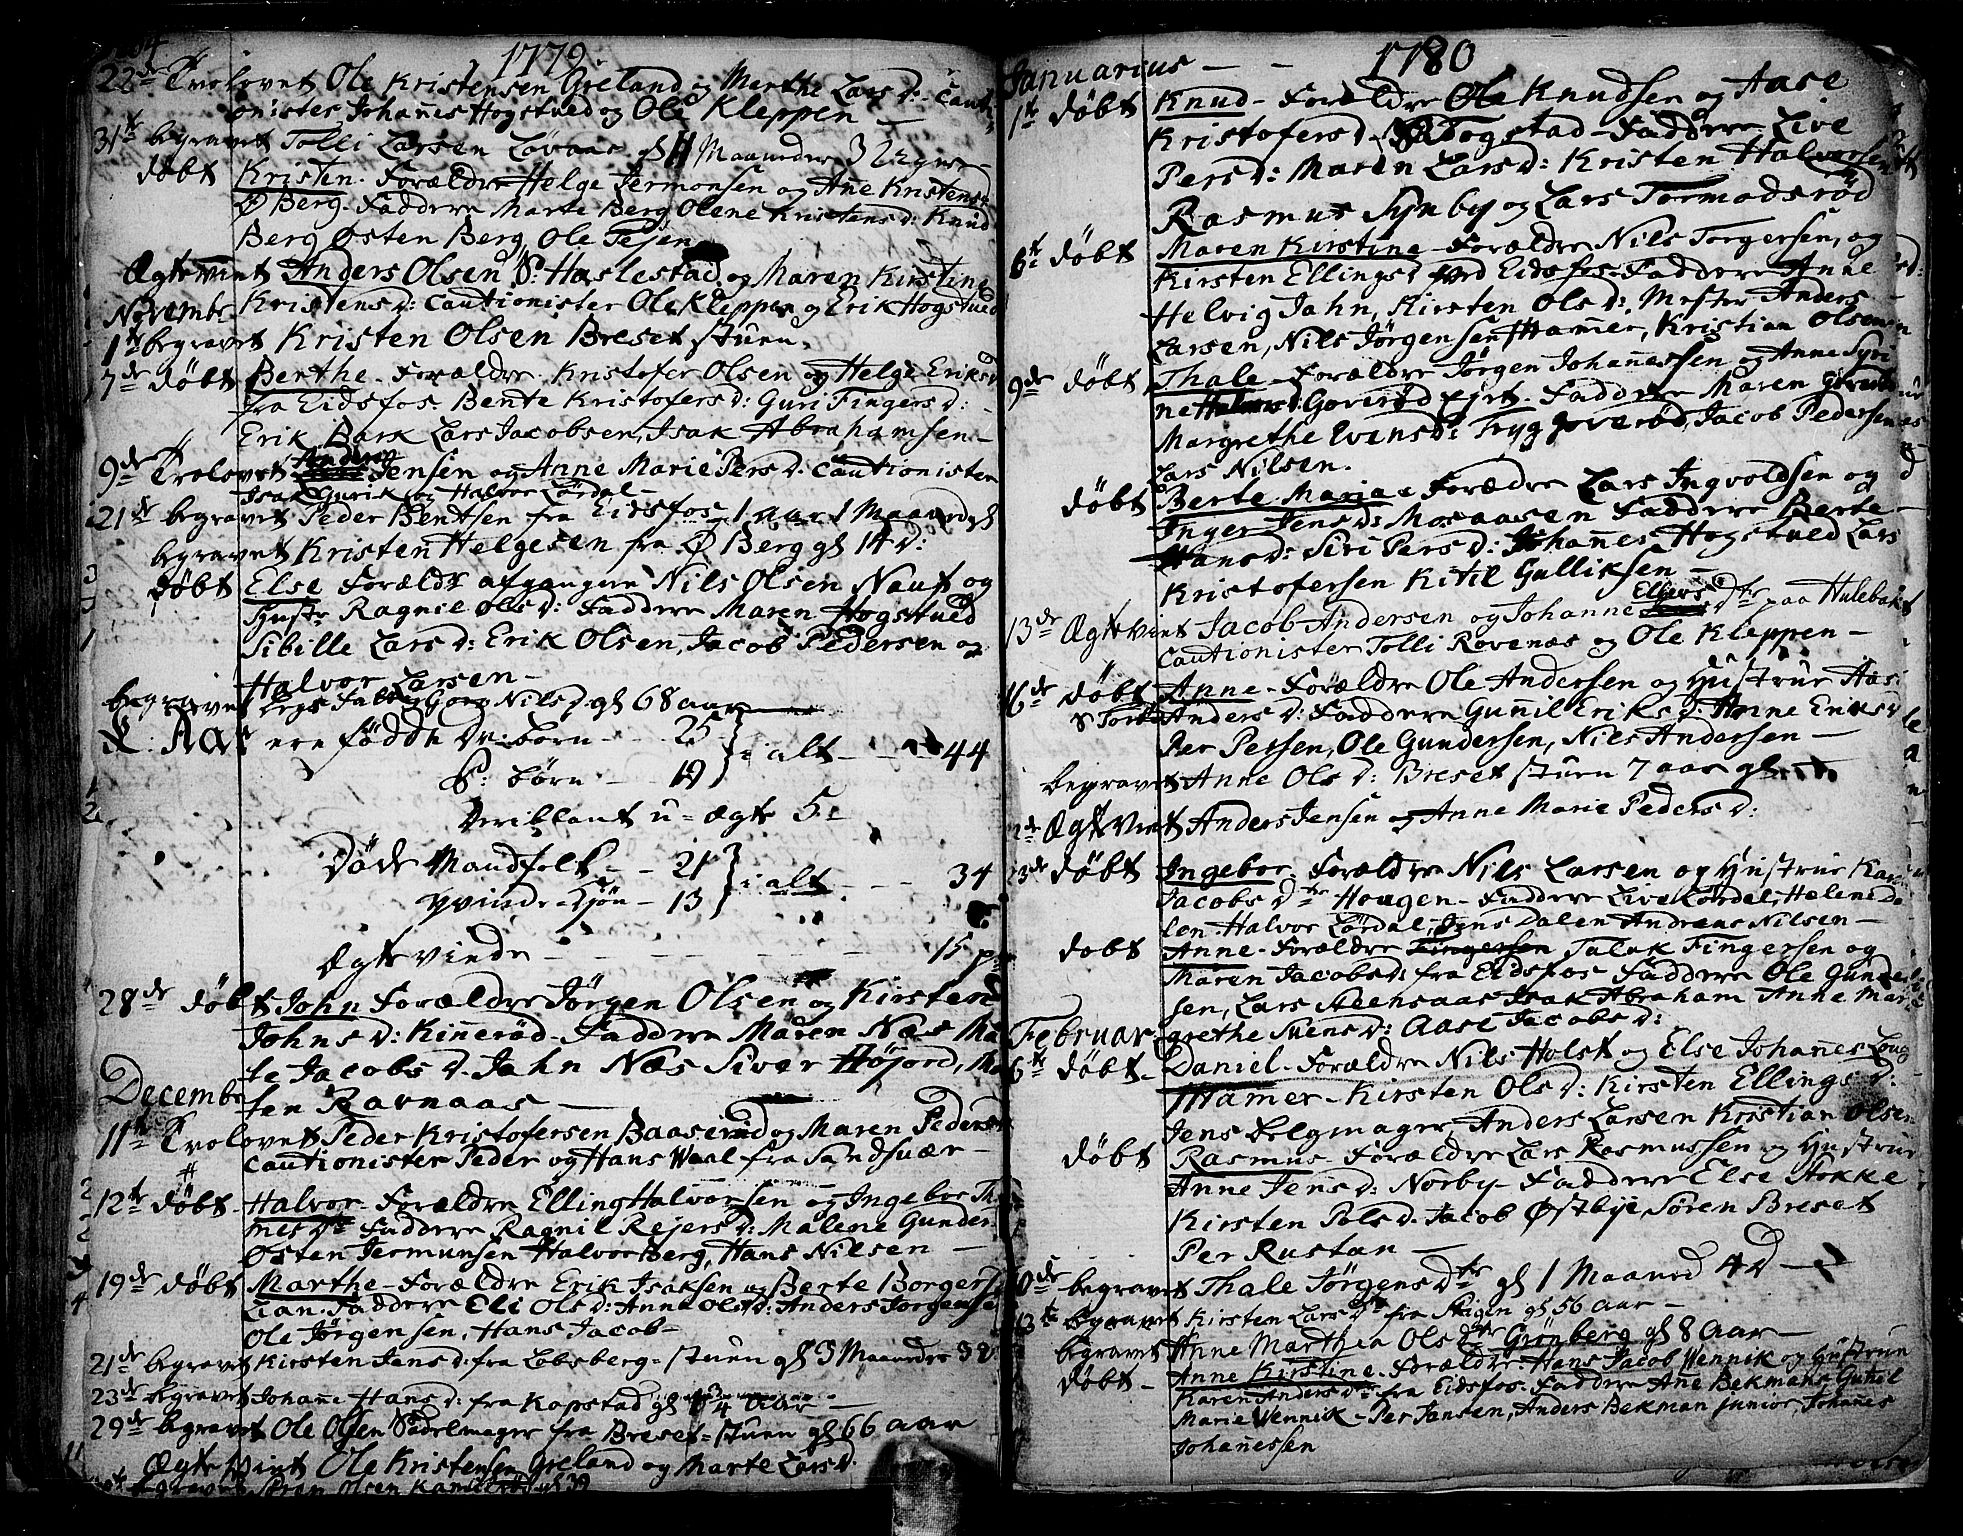 1779
22de Trolovet Ole Kristensen Greland og Marthe Lars d: Caut-
onister Johan̄es Hogstued og Ole Kleppen
31t begravet Tolli Larsen Løvaas gl 11 Maaneder 3
døbt Kristen. Forældre Helge Jermonsen og An̄e Kristensd
Ø Berg. Faddere Marte Berg Olene Kristens d: Knud
Berg Østen Berg, Ole Tejen
Ægteviet Anders Olsen S: Haslestad og Maren Kirstine
November Kristens d: Cautionister Ole Kleppen og Erik Hogstued
1te begravet Kristen Olsen Breset stuen.
7de døbt Berthe. Forældre Kristofer Olsen og Helge Eriksd
fra Eidsfos. Bente Kristofers d: Guri Fingers d:
Erik Bark Lars Jacobsen, Isak Abrahamsen
9de Trolovet Anders Jensen og Anne Marie Pers d: Cautionister
Isak Gurik og Halvor Lørdal
21de begravet Peder Bentsen fra Eidsfos 1 aar 1 Maaned gl
begravet Kristen Helgesen fra Ø Berg gl 14 d:
døbt Else Forældr afgangne Nils Olsen Nauf og
Hustr Ragnil Ols d: Faddere Maren Hogstued
Sibille Lars d: Erik Olsen, Jacob Pedersen og
Halvor Larsen
begravet Nils d gl 68 aar
d: Aar ere fødde Dr: børn 25
i alt 44
P: børn 19
Deriblant u-Ægte 5
Døde Mandfolk 21
i alt 34
Qvinde-Kjøn 13
Ægteviede 15 p
28de døbt John Forældre Jørgen Olsen og Kirsten
Johns d: Kin̄erød. Faddere Maren Næs Ma
te Jacobs d. Jahn Næs Siver Højord, Ma
December ten Ravnaas
11te Trolovet Peder Kristofersen Baaserud og Maren Peders
Cautionister Peder og Hans Waal fra Sandsuær
12te døbt Halvor. Forældre Elling Halvorsen og Ingebor Tho
mes dtr Faddere Ragnil Rejers d: Malene Gunder
Østen Jermunsen Halvor Berg, Hans Nilsen
19de døbt Marthe. Forældre Erik Isaksen og Berte Borgers
Lian. Faddere Eli Ols d: Anne Ols d: Anders Jørgense
Ole Jørgensen, Hans Jacob
21de begravet Kirsten Jens d: fra Løbsberg-stuen gl 3 Maaneder 3
23de begravet Johan̄e Hans d: fra Kopstad gl 3/4 aar
29de begravet Ole Olsen Sadelmager fra Breset-stuen gl 66 aar
Ægteviet Ole Kristensen Greland og Marte Lars d.
begravet Søren Olsen
1780
Januarius
1te døbt Knud. Forældre Ole Knudsen og Aase
Kristofers d: Togstad. Faddere Live
Pers d: Maren Lars d: Kristen Halvorsen
Rasmus Synby og Lars Tormodsrød
6te døbt Maren Kirstine. Forældre Nils Torgersen, og
Kirsten Ellings d ved Eidsfos. Faddere Anne
Helvig Jahn, Kirsten Ols d: Mester Anders
Larsen, Nils Jørgensen Ham̄er, Kristian Olsen
9de døbt Thale. Forældre Jørgen Johan̄essen og Anne Syri
Goverød ejet. Faddere Maren Goverød
Margrethe Evens d: Tryg Goverød, Jacob Pedersen
Lars Nilsen.
døbt Berte Maria. Forældre Lars Ingvoldsen og
Inger Jens d: Mosaasen Faddere Berte
Hans d: Siri Pers d: Johan̄es Hogstued Lars
Kristofersen Kitil Gulliksen
13de Ægteviet Jacob Andersen og Johanne Ellevs dtr paa Hulebakk
Cautionister Tolli Rovenæs og Ole Kleppen
16de døbt Anne. Forældre Ole Andersen og Hustrue Aase
Anders d: Faddere Gun̄il Eriks d: An̄e Eriks d
Per Persen, Ole Gundersen, Nils Andersen
begravet Anne Ols d: Breset stuen 7 aar gl
Ægteviet Anders Jensen og Anne Marie Peders d:
23de døbt Ingebor. Forældre Nils Larsen og Hustrue Karen
Jacobs dtr Hougen. Faddere Live Lørdal, Helene Da
len Halvor Lørdal, Jens Dalen Andreas Nilsen
døbt Anne. Forældre Taluk Fingersen og
Maren Jacobs d: fra Eidsfos Faddere Ole Gunde
sen, Lars Steensaas Isak Abraham Anne Mar
Februar grethe Svens d: Aase Jacobs d:
6te døbt Daniel. Forældre Nils Holst og Else Johan̄es
Ham̄er. Kirsten Ols d: Kirsten Ellings d:
Jens Belgmager, Anders Larsen Kristian Olsen
døbt Rasmus. Forældre Lars Rasmussen og Hustrue
Anne Jens d: Norby. Faddere Else Hokke
Kirsten Pols d: Jacob Østbye, Søren Breset
Per Rustan
10de begravet Thale Jørgens dtr gl 1 Maaned 4 D
13te begravet Kirsten Lars dtr fra Skagen gl 56 aar
begravet An̄e Marthea Ols dtr Grønberg gl 8 aar
døbt Anne Kirstine. Forældre Hans Jacob Wennik og Hustrue
Karen Anders dtr fra Eidsfos. Faddere An̄e Bekmans Gunil
Marie Wennik. Per Jansen, Anders Bekman junior, Johan̄es
Johan̄essen